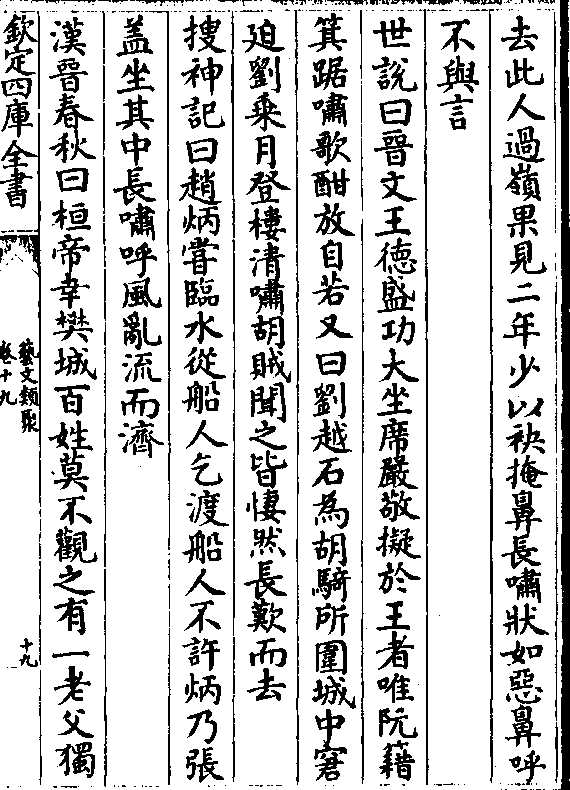 去此人過嶺果見二年少以袂掩鼻長嘯狀如惡鼻呼
不與言
世說曰晉文王德盛功大坐席嚴敬擬於王者唯阮籍
箕踞嘯歌酣放自若又曰劉越石為胡騎所圍城中窘
廹劉乗月登樓清嘯胡賊聞之皆悽然長歎而去
搜神記曰趙炳嘗臨水從船人乞渡船人不許炳乃張
盖坐其中長嘯呼風亂流而濟
漢晉春秋曰桓帝幸樊城百姓莫不觀之有一老父獨
欽定四庫全書
藝文類聚
卷十九
十九